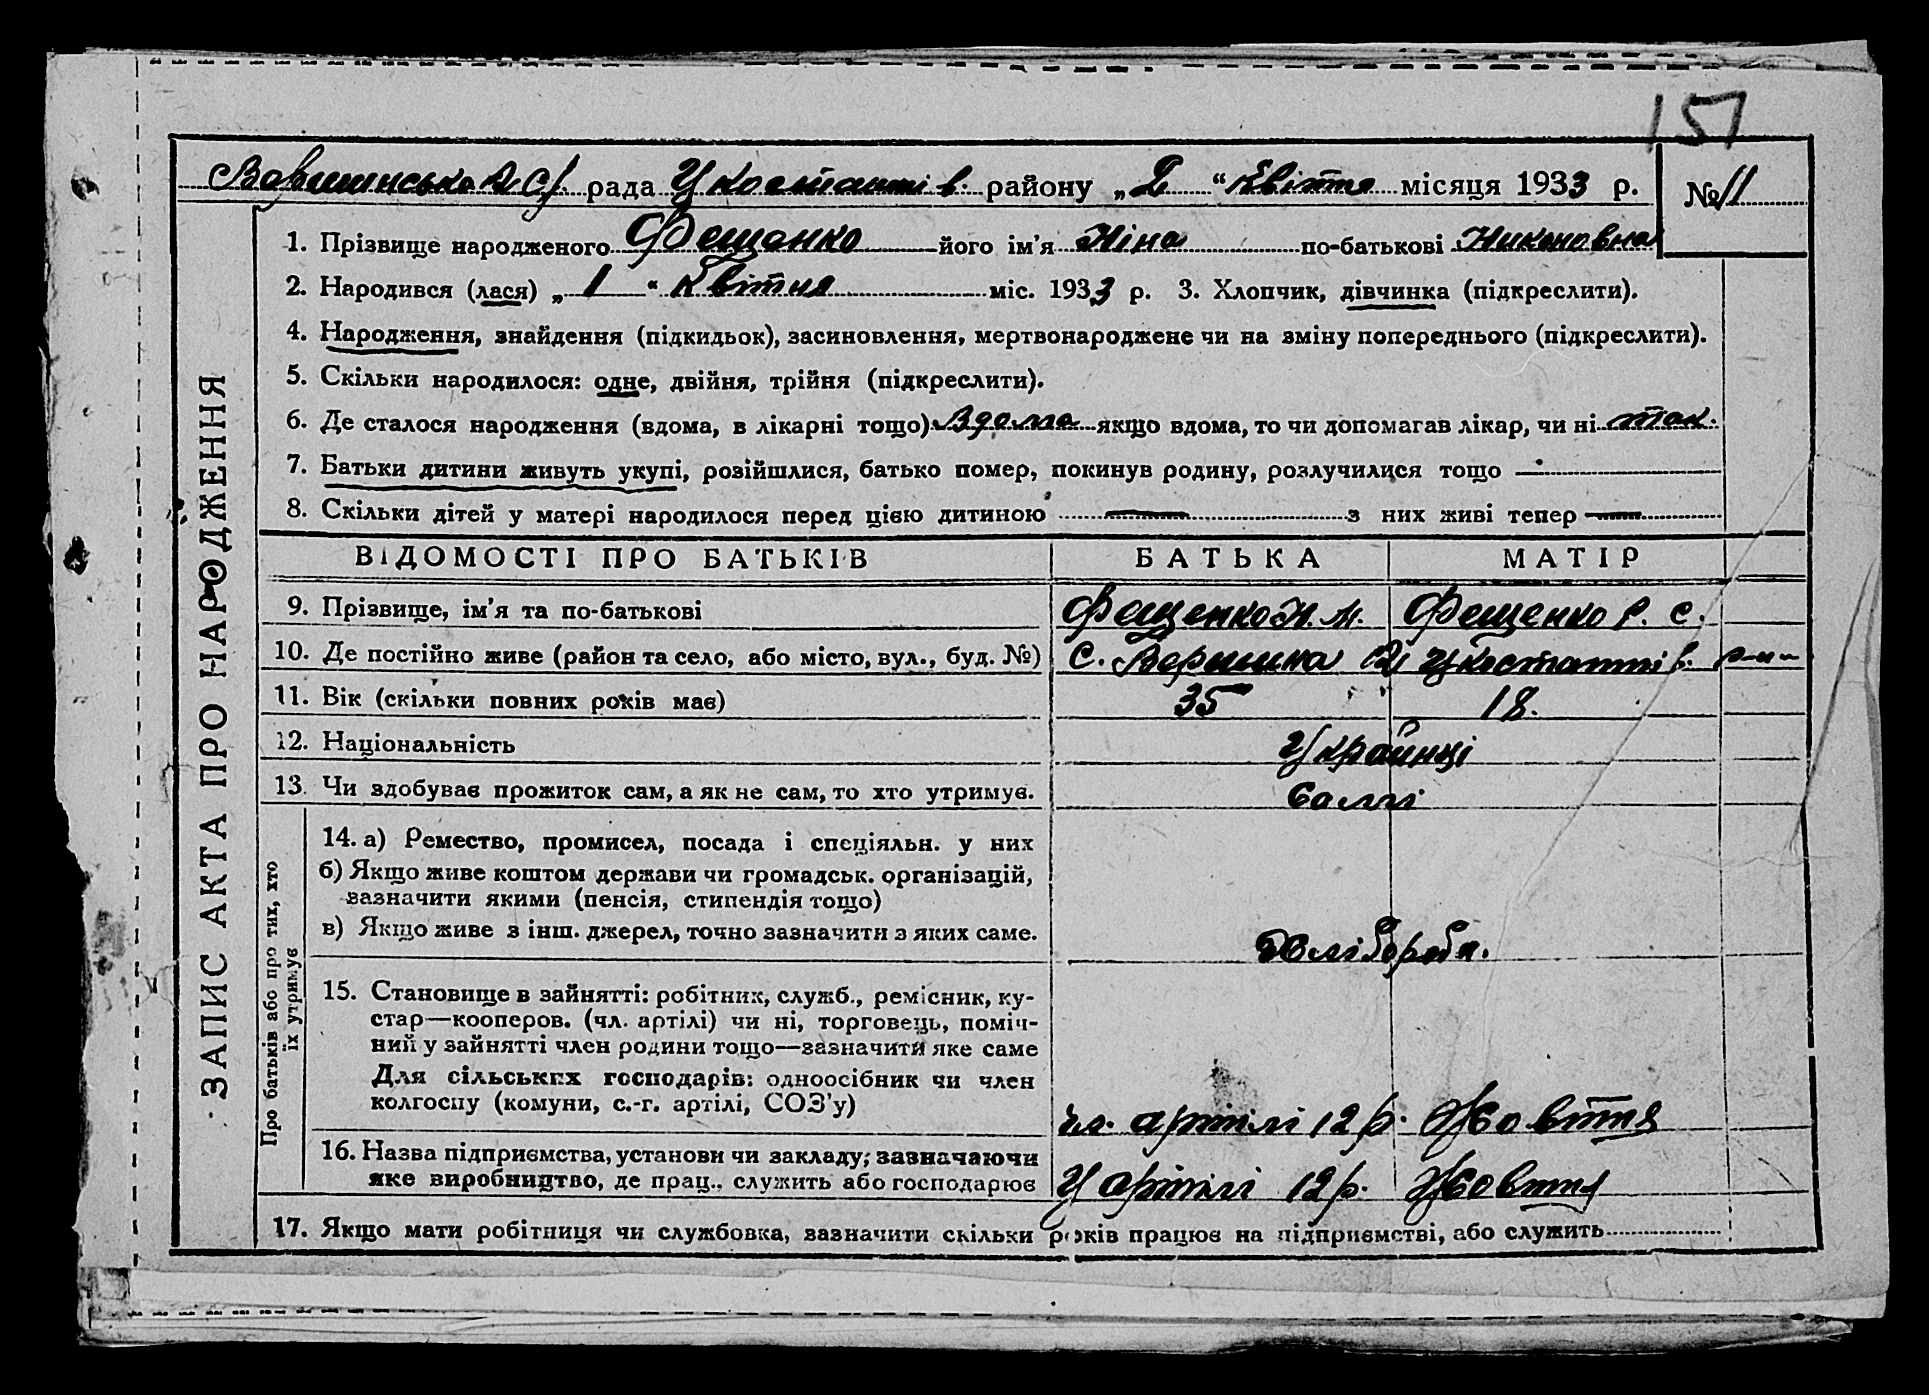 151
рада У Костянтів. району „2“ Квітня місяця 1933 р. № 11
1. Прізвище народженого Фещенко його ім'я Ніна по-батькові Никоновна
2. Народився (лася) „1“ Квітня міс. 1933 р. 3. Хлопчик, дівчинка (підкреслити).
4. Народження, знайдення (підкидьок), засиновлення, мертвонароджене чи на зміну попереднього (підкреслити).
5. Скільки народилося: одне, двійня, трійня (підкреслити).
6. Де сталося народження (вдома, в лікарні тощо) Вдома якщо вдома, то чи допомагав лікар, чи ні так.
7. Батьки дитини живуть укупі, розійшлися, батько помер, покинув родину, розлучилися тощо —
8. Скільки дітей у матері народилося перед цією дитиною — з них живі тепер —
ВІДОМОСТІ ПРО БАТЬКІВ БАТЬКА МАТІР
9. Прізвище, ім'я та по-батькові Фещенко Н. М. Фещенко Р. С.
10. Де постійно живе (район та село, або місто, вул., буд. №) с. Вершина
11. Вік (скільки повних років має) 35 18.
12. Національність Українці
13. Чи здобуває прожиток сам, а як не сам, то хто утримує. Самі
14. а) Ремество, промисел, посада і спеціяльн. у них
б) Якщо живе коштом держави чи громадськ. організацій,
зазначити якими (пенсія, стипендія тощо)
в) Якщо живе з інш. джерел, точно зазначити з яких саме. Хлібороби.
15. Становище в зайнятті: робітник, служб., ремісник, ку-
стар—кооперов. (чл. артілі) чи ні, торговець, поміч-
ний у зайнятті член родини тощо—зазначити яке саме
Для сільських господарів: одноосібник чи член
колгоспу (комуни, с.-г. артілі, СОЗ'у) чл. артілі 12 р. Жовття
16. Назва підприємства, установи чи закладу; зазначаючи
яке виробництво, де прац., служить або господарює У артілі 12 р. Жовття
17. Якщо мати робітниця чи службовка, зазначити скільки років працює на підприємстві, або служить
ЗАПИС АКТА ПРО НАРОДЖЕННЯ
Про батьків або про тих, хто
їх утримує